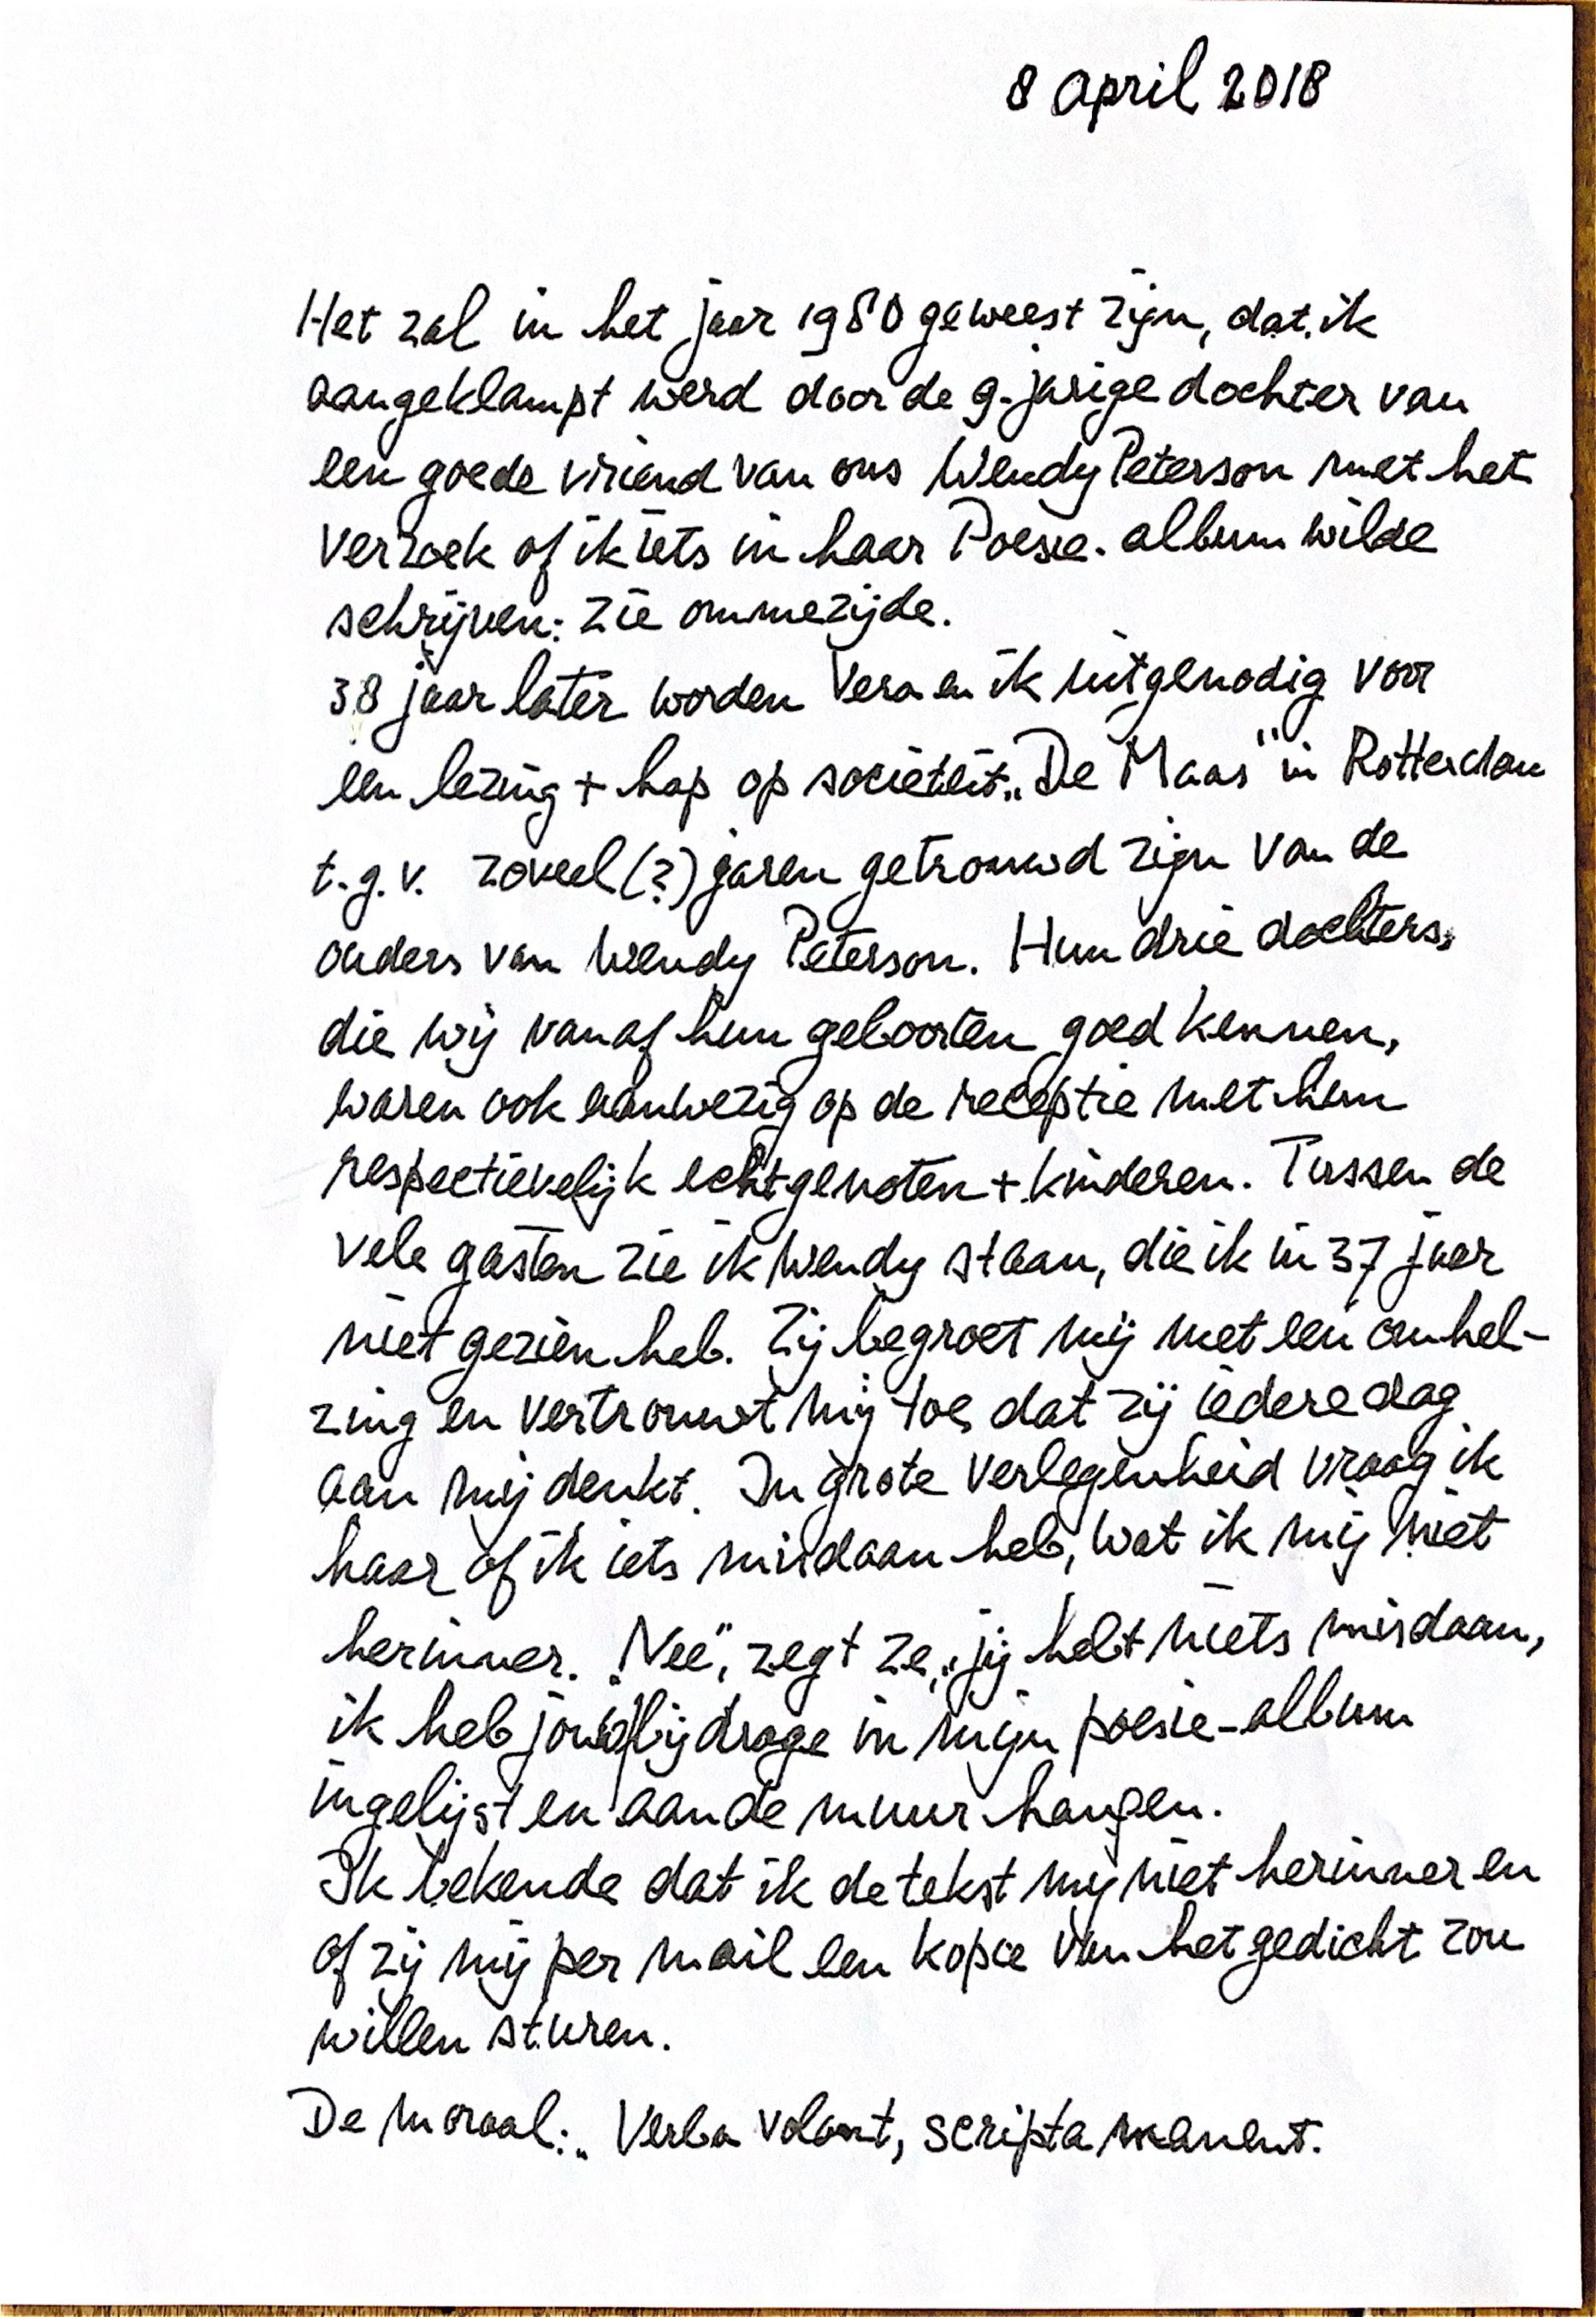 8 april 2018
Het zal in het jaar 1980 geweest zijn, dat ik
aangeklampt werd door de 9-jarige dochter van
een goede vriend van ons Wendy Peterson met het
verzoek of ik iets in haar Poesie-album wilde
schrijven: zie ommezijde.
38 jaar later worden Vera en ik uitgenodig voor
een lezing + hap op sociëteit „De Maas" in Rotterdam
t.g.v. zoveel (?) jaren getrouwd zijn van de
ouders van Wendy Peterson. Hun drie dochters,
die wij vanaf hun geboorten goed kennen,
waren ook aanwezig op de receptie met hun
respectievelijk echtgenoten + kinderen. Tussen de
vele gasten zie ik Wendy staan, die ik in 37 jaar
niet gezien heb. Zij begroet mij met een omhel-
zing en vertrouwt mij toe dat zij iedere dag
aan mij denkt. In grote verlegenheid vraag ik
haar of ik iets misdaan heb, wat ik mij niet
herinner. „Nee", zegt ze, „jij hebt niets misdaan,
ik heb jouw bijdrage in mijn poesie-album
ingelijst en aan de muur hangen.
Ik bekende dat ik de tekst mij niet herinner en
of zij mij per mail een kopie van het gedicht zou
willen sturen.
De moraal: „Verba volant, scripta manent.